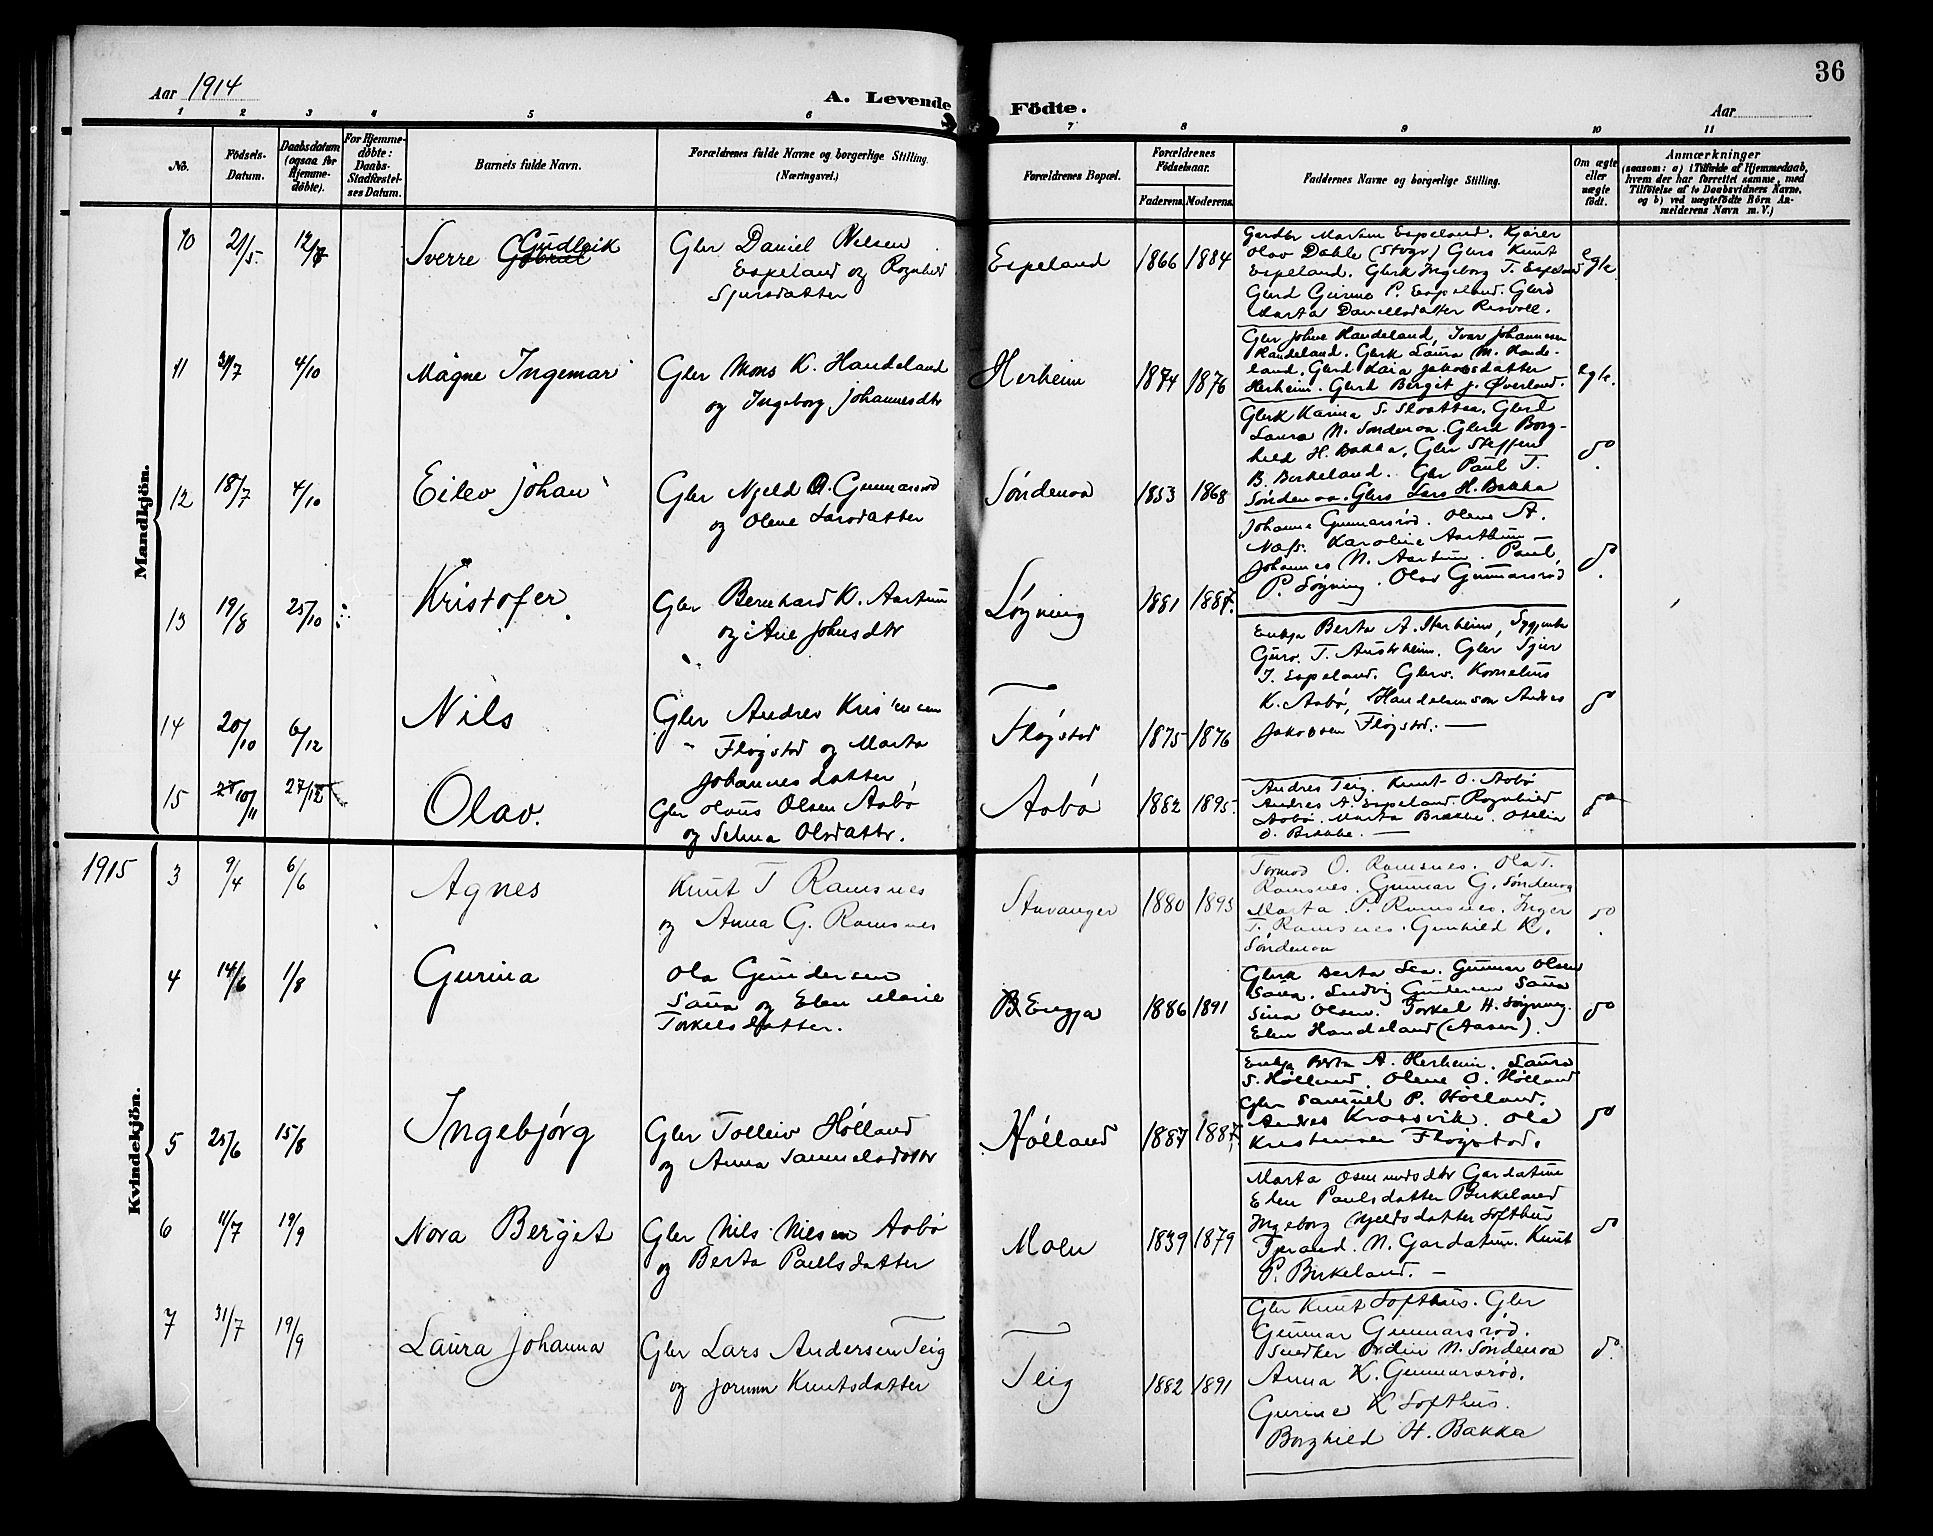 Aar 1914
A. Levende Födte.
36
Aar
1 2 3 4 5 6 7 8 9 10 11
No.
Födsels-Datum.
Daabsdatum (ogsaa for Hjemme-döbte).
For Hjemme-döbte: Daabs-Stadfæstel-ses Datum.
Barnets fulde Navn.
Forældrenes fulde Navne og borgerlige Stilling.
(Næringsvei.)
Forældrenes Bopæl.
Forældrenes Födselsaar.
Faderens. Moderens.
Faddernes Navne og borgerlige Stilling.
Om ægte eller uægte födt.
Anmærkninger
(saasom: a) i Tilfælde af Hjemmedaab,
hvem der har forrettet samme, med
Tilföielse af to Daabsvidners Navne,
og b) ved uægtefödte Börn An-
melderens Navn m. V.)
Mandkjön.
10 21/5 12/7 Sverre Gabriel Gudleik
Gbr Daniel Nilsen
Espeland og Ragnhild
Sjursdatter
Espeland 1866 1884
Gardbr Martin Espeland. Kjörer
Olav Dahle (Stvgr) Gbrs Knut
Espeland. Gbrk Ingeborg T. Espeland
Gbrd Gurina P. Espeland. Gbrd
Marta Danielsdatter Risvoll.
egte
11 31/7 4/10 Magne Ingemar
Gbr Mons K. Handeland
og Ingeborg Johannesdtr
Herheim 1874 1876
Gbr Johne Handeland, Ivar Johannesen
Handeland. Gbrk Laura M. Hande-
land. Gbrd Kaia Jakobsdatter
Herheim. Gbrd Berget J. Øverland.
egte.
12 18/7 4/10 Eilev Johan
Gbr Njeld A. Gunnarsrød
og Olene Larsdatter
Søndenaa 1853 1868
Gbrk Karina S. Sloattea. Gbrd
Laura N. Søndenaa. Gbrd Borg-
hild H. Bakka. Gbr Steffen
B. Birkeland. Gbr Paul T.
Søndenaa. Gbrs Lars H. Bakka
do
13 19/8 25/10 Kristofer.
Gbr Bernhard K. Aartun
og Ane Johnsdtr
Løgning 1881 1887.
Johanna Gunnarsrød. Olene A.
Næss. Karoline Aarthun —
Johannes N. Aartun. Paul
P. Løgning. Olav Gunnarsrød
do
14 20/10 6/12 Nils
Gbr Andres Kristensen
Fløgstad og Marta
Johannesdatter
Fløgstad 1875 1876
Enkja Berta A. Herheim, Sygjente
Guro. T. Austrheim. Gbr Sjur
T. Espeland. Gbrs. Kornelius
K. Aabø, Handelsmann Andres
Jakobsen Fløgstad. —
do
15 10/11 27/12 Olav.
Gbr Olaus Olsen Aabø
og Selma Olsdatter.
Aabø 1882 1895.
Andres Teig. Knut O. Aabø
Andres A. Espeland. Ragnhild
Aabø. Marta Brekke. Otelia
O. Brekke. —
do
1915
Kvindekjön.
3 9/4 6/6 Agnes
Knut T Ramsnes
og Anna G. Ramsnes
Stavanger 1880 1895
Tormod O. Ramsnes. Ola T.
Ramsnes. Gunnar G. Søndenaa
Marta P. Ramsnes. Inger
T. Ramsnes. Gunhild K.
Søndenaa
do
4 14/6 1/8 Gurina
Ola Gundersen
Saua og Elen Marie
Torkelsdatter.
Engja 1886 1891
Gbrk Berta Lea. Gunnar Olsen
Saua. Ludvig Gundersen Saua
Sina Olsen. Torkel H. Løgning.
Elen Handeland (Aasen).
do
5 25/6 15/8 Ingebjørg
Gbr Tolleiv Hølland
og Anna Samuelsdatter
Hølland 1887 1887
Enkja Berta A. Herheim. Laura
S. Hølland. Olene O. Hølland
Gbr Samuel P. Hølland.
Andres Krossvik. Ola
Kristensen Fløgstad.
do
6 11/7 19/9 Nora Berget
Gbr Nils Nilsen Aabø
og Berta Paulsdatter
Moen 1839 1879
Marta Osmundsdtr Gardatun
Elen Paulsdatter Birkeland
Ingeborg Njeldsdatter Softhus
Tjerand. N. Gardatun. Knut
P. Birkeland. —
do
7 31/7 19/9 Laura Johanna
Gbr Lars Andersen Teig
og Jorunn Knutsdatter
Teig 1882 1891
Gbr Knut Softhus. Gbr
Gunnar Gunnarsrød.
Snedker Ordin N. Søndenaa
Anna K. Gunnarsrød.
Gurine K Softhus.
Borghild H. Bakka
do